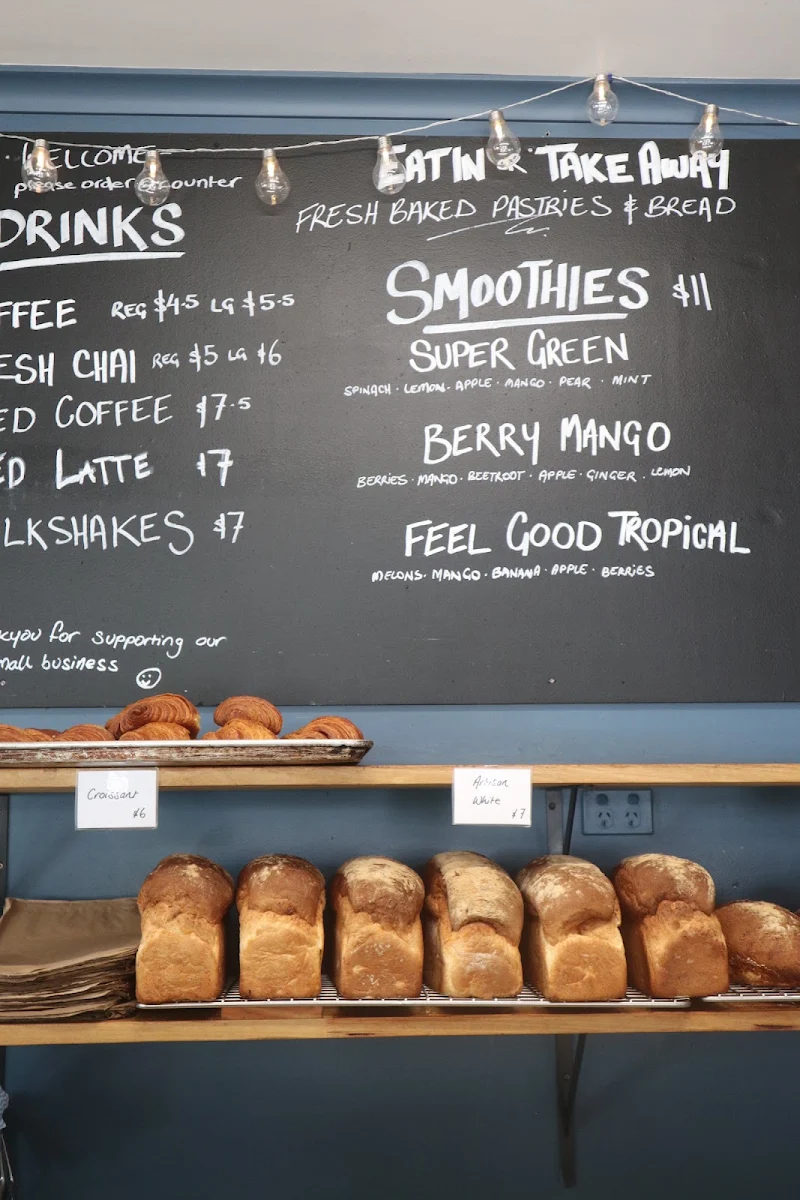 WELCOME
please order @ counter
DRINKS
FFEE REG $4.5 LG $5.5
ESH CHAI REG $5 LG $6
ED COFFEE $7.5
ED LATTE $7
LKSHAKES $7
kyou for supporting our
mall business
EAT IN & TAKE AWAY
FRESH BAKED PASTRIES & BREAD
SMOOTHIES $11
SUPER GREEN
SPINACH · LEMON · APPLE · MANGO · PEAR · MINT
BERRY MANGO
BERRIES · MANGO · BEETROOT · APPLE · GINGER · LEMON
FEEL GOOD TROPICAL
MELONS · MANGO · BANANA · APPLE · BERRIES
Croissant
$6
Artisan
White
$7